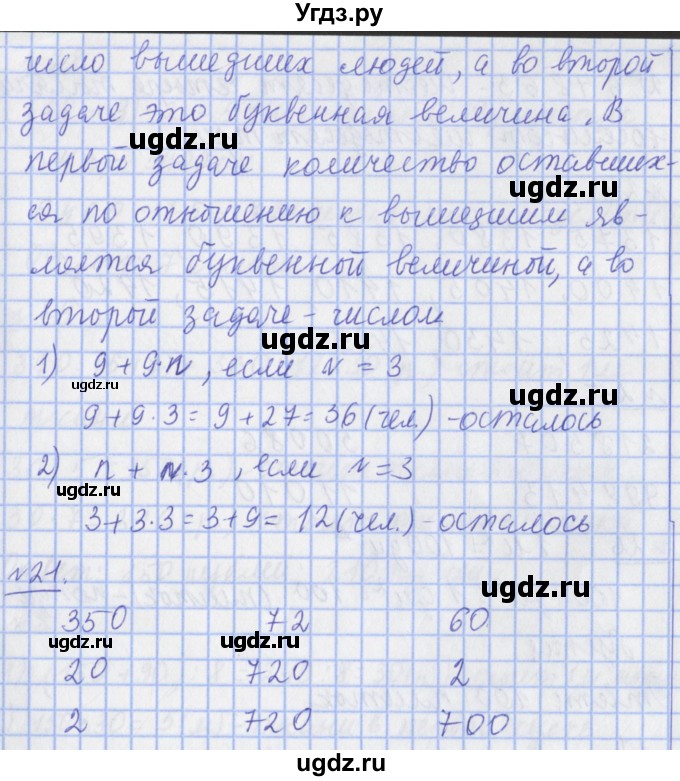 Угдз.ру
число вышедших людей, а во второй
задаче это буквенная величина. В
первой задаче количество оставших-
ся по отношению к вышедшим яв-
ляется буквенной величиной, а во
второй задаче - числом
1) 9 + 9·n, если n = 3
9 + 9·3 = 9 + 27 = 36 (чел.) - осталось
2) n + n·3, если n = 3
3 + 3·3 = 3 + 9 = 12 (чел.) - осталось
№21.
350 72 60
20 720 2
2 720 700
ugdz.ru
ugdz.ru
ugdz.ru
ugdz.ru
ugdz.ru
ugdz.ru
ugdz.ru
ugdz.ru
ugdz.ru
ugdz.ru
ugdz.ru
ugdz.ru